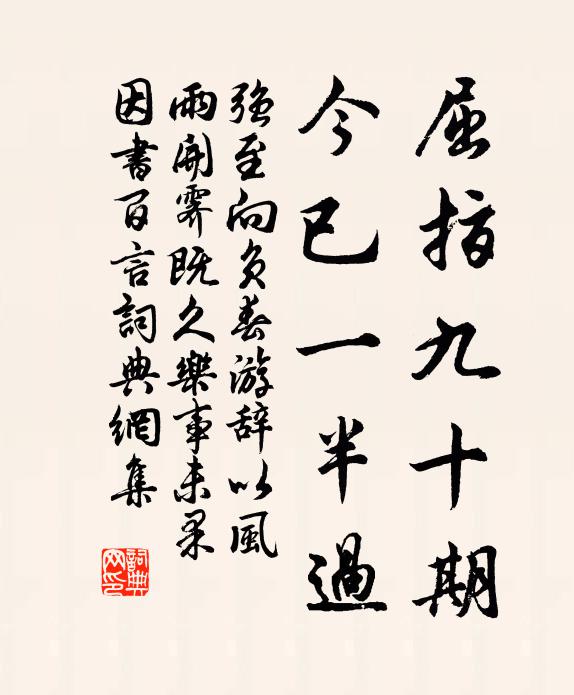 屈指九十期
今已一半過
強至向負春游辞以風
雨開霽既久樂事未果
因書百言詞典網集
詞典网印